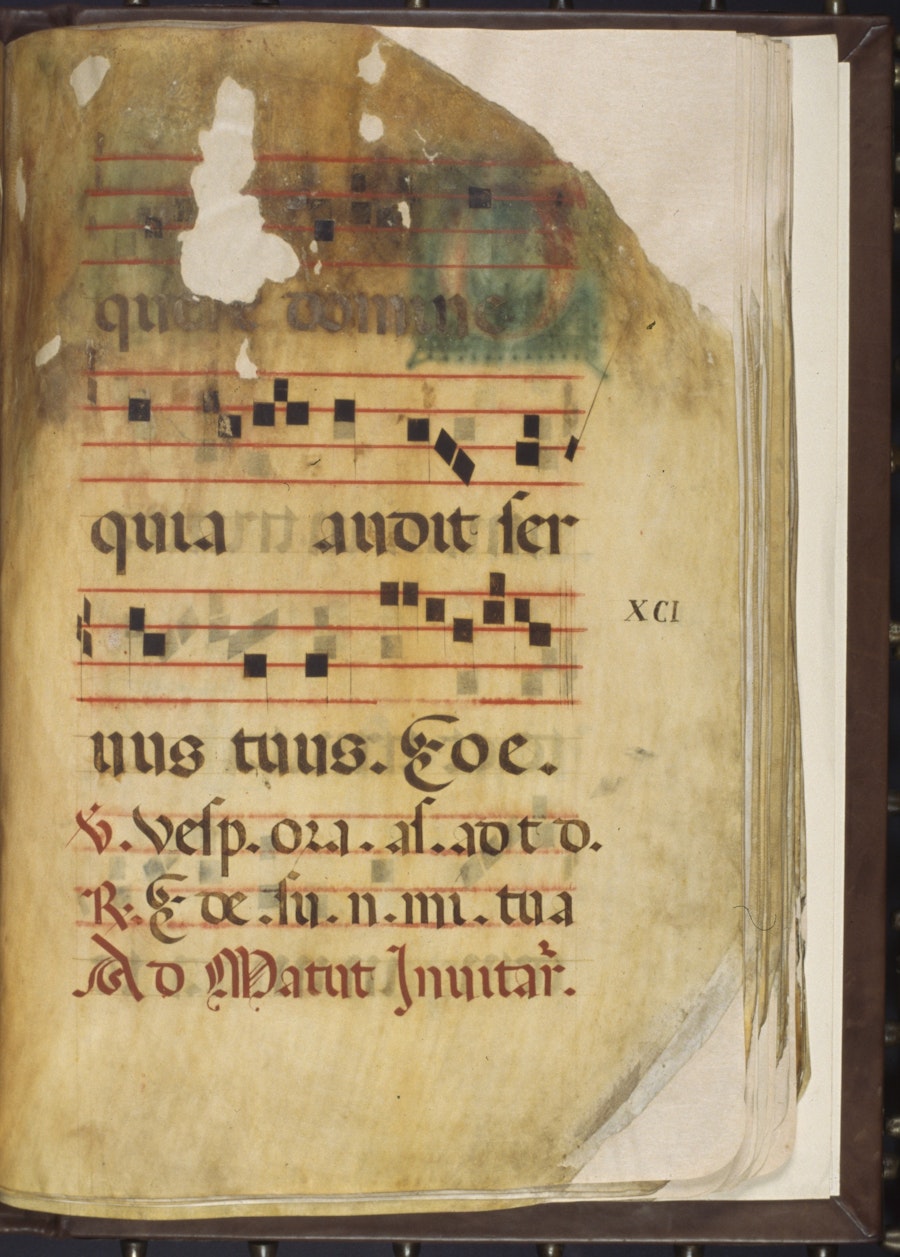 quere domine
quia audit ser
XCI
uus tuus. Eoe.
V. Vesp. ora. as. ad t d.
R. E de. su. n. mi. tua
Ad Matut Inuitar.